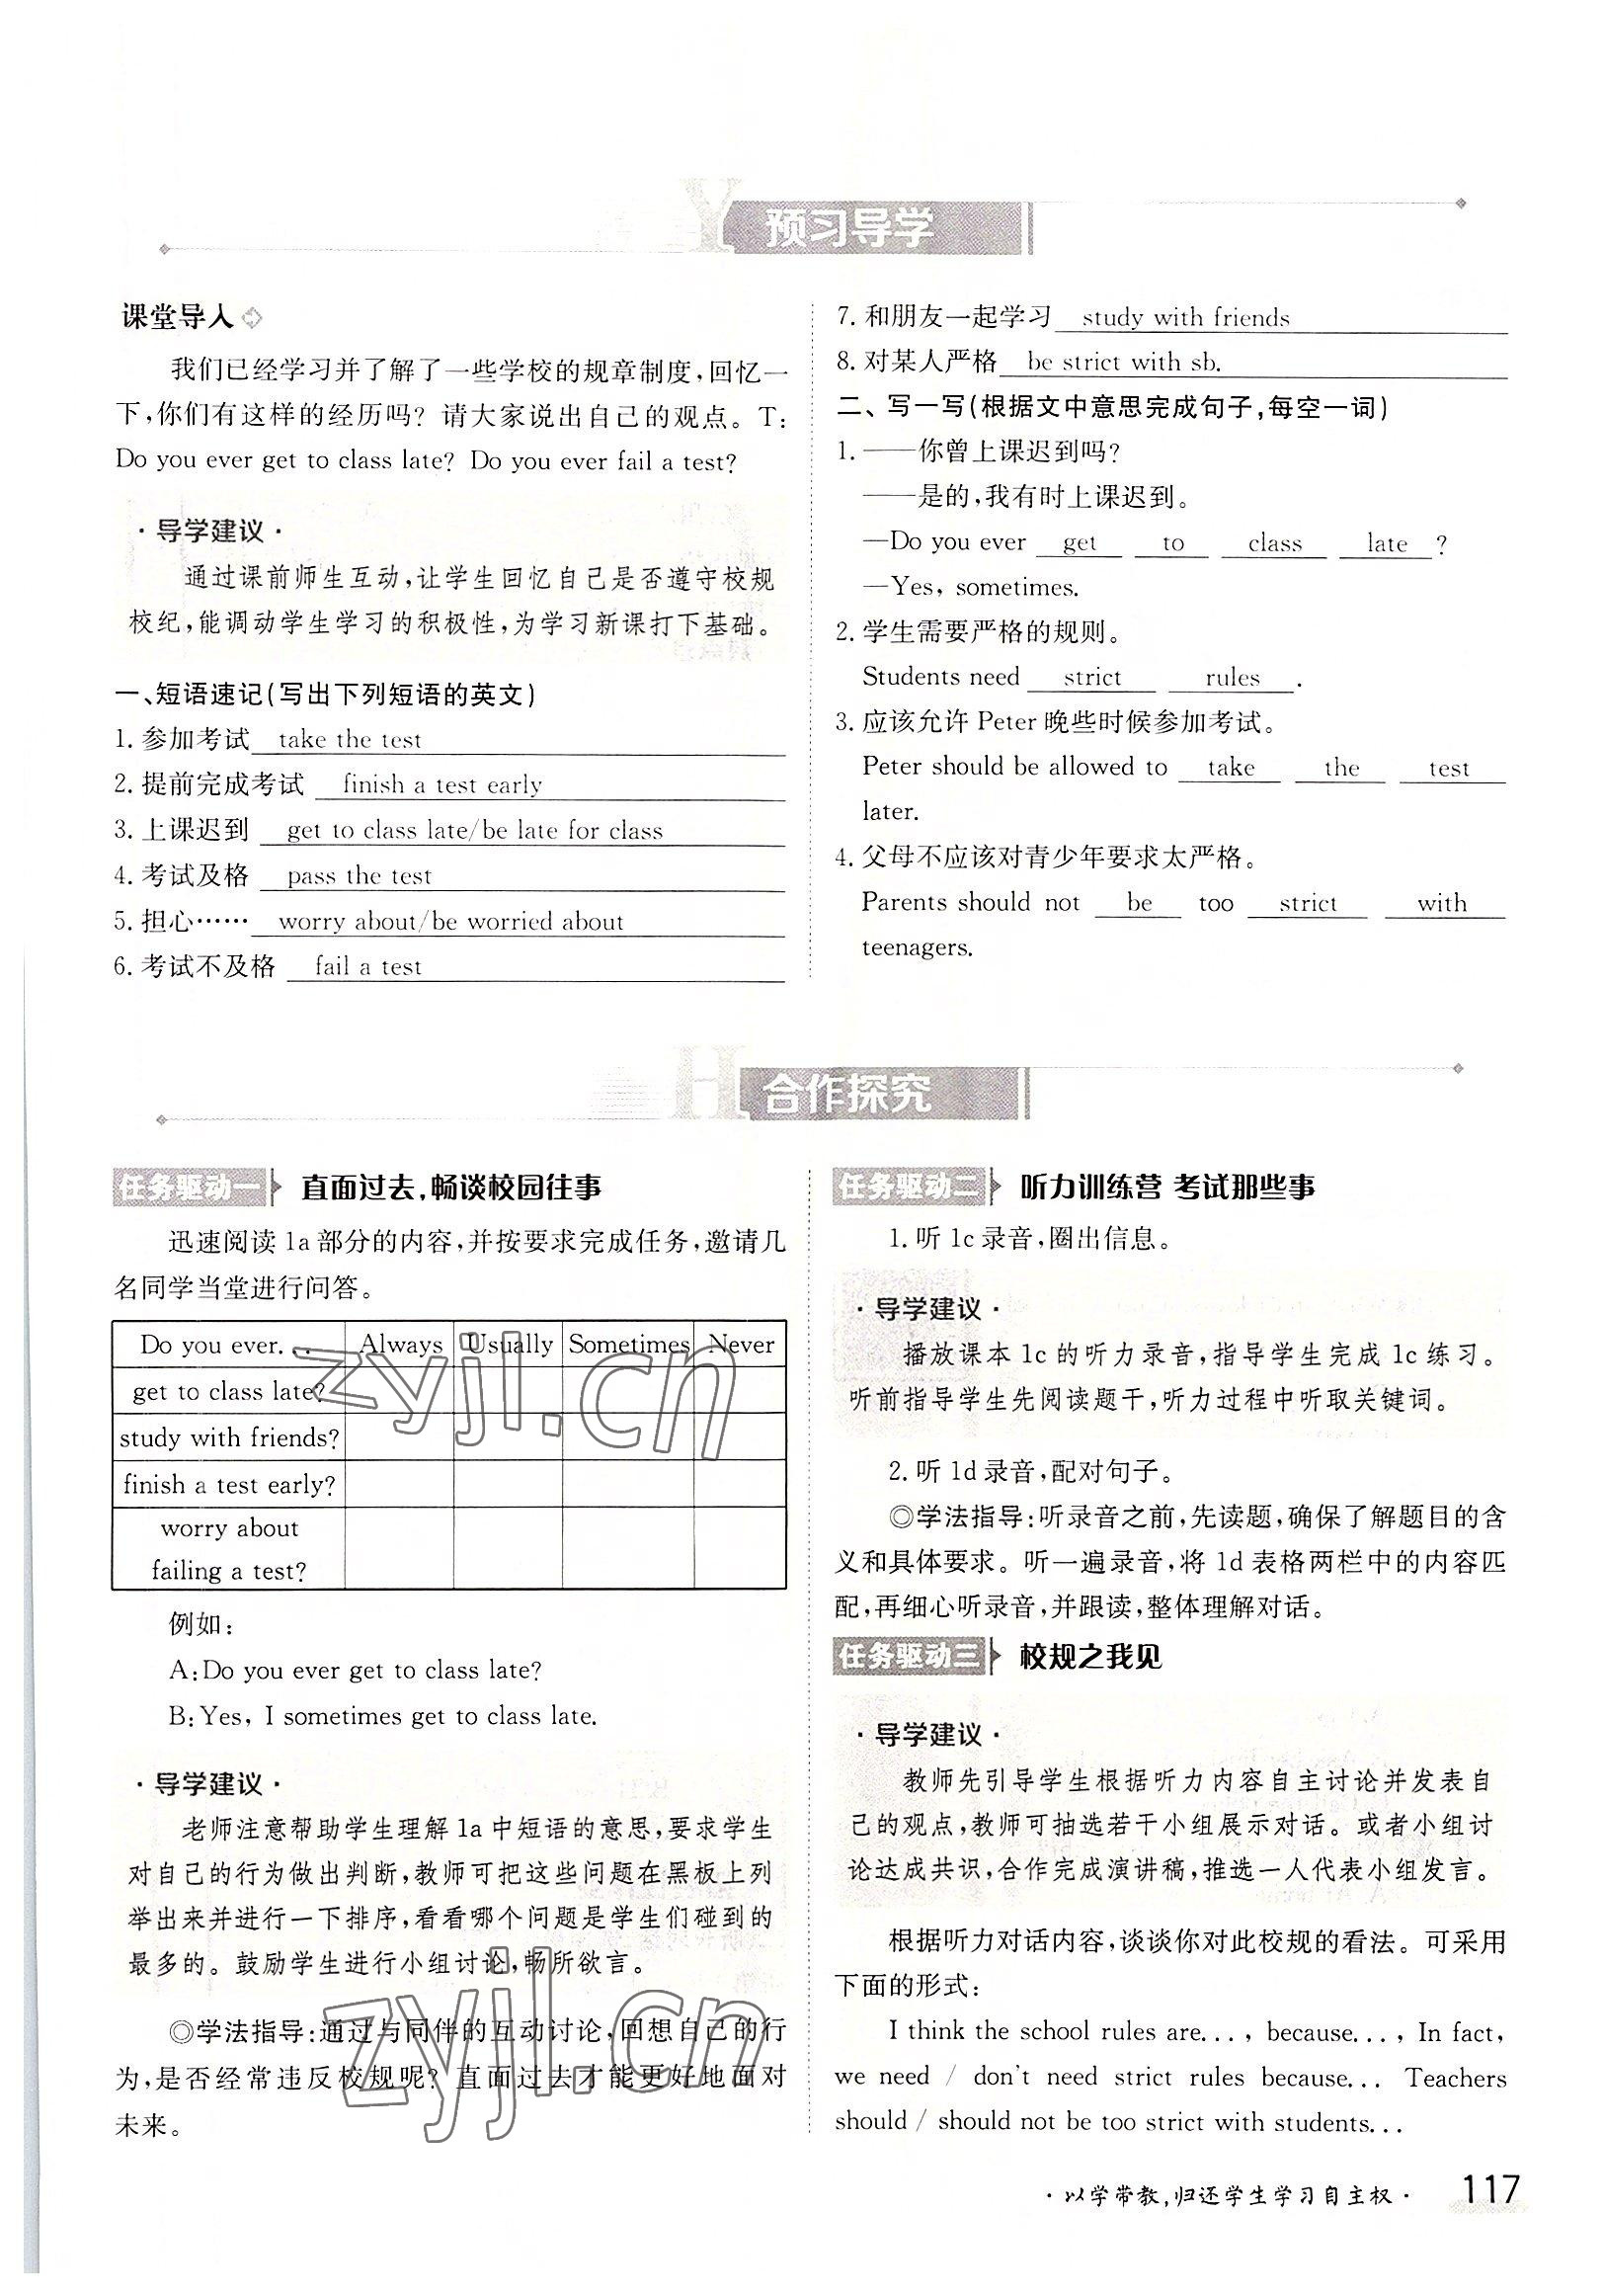 预习导学
课堂导入
我们已经学习并了解了一些学校的规章制度,回忆一
下,你们有这样的经历吗？请大家说出自己的观点。T:
Do you ever get to class late? Do you ever fail a test?
·导学建议·
通过课前师生互动,让学生回忆自己是否遵守校规
校纪,能调动学生学习的积极性,为学习新课打下基础。
一、短语速记(写出下列短语的英文)
1. 参加考试 take the test
2. 提前完成考试 finish a test early
3. 上课迟到 get to class late/be late for class
4. 考试及格 pass the test
5. 担心…… worry about/be worried about
6. 考试不及格 fail a test
7. 和朋友一起学习 study with friends
8. 对某人严格 be strict with sb.
二、写一写(根据文中意思完成句子,每空一词)
1. ——你曾上课迟到吗？
——是的,我有时上课迟到。
—Do you ever get to class late ?
—Yes, sometimes.
2. 学生需要严格的规则。
Students need strict rules .
3. 应该允许 Peter 晚些时候参加考试。
Peter should be allowed to take the test
later.
4. 父母不应该对青少年要求太严格。
Parents should not be too strict with
teenagers.
合作探究
任务驱动一 直面过去,畅谈校园往事
迅速阅读 1a 部分的内容,并按要求完成任务,邀请几
名同学当堂进行问答。
Do you ever... Always Usually Sometimes Never
get to class late?
study with friends?
finish a test early?
worry about
failing a test?
例如:
A:Do you ever get to class late?
B:Yes, I sometimes get to class late.
·导学建议·
老师注意帮助学生理解 1a 中短语的意思,要求学生
对自己的行为做出判断,教师可把这些问题在黑板上列
举出来并进行一下排序,看看哪个问题是学生们碰到的
最多的。鼓励学生进行小组讨论,畅所欲言。
◎学法指导:通过与同伴的互动讨论,回想自己的行
为,是否经常违反校规呢？直面过去才能更好地面对
未来。
任务驱动二 听力训练营 考试那些事
1. 听 1c 录音,圈出信息。
·导学建议·
播放课本 1c 的听力录音,指导学生完成 1c 练习。
听前指导学生先阅读题干,听力过程中听取关键词。
2. 听 1d 录音,配对句子。
◎学法指导:听录音之前,先读题,确保了解题目的含
义和具体要求。听一遍录音,将 1d 表格两栏中的内容匹
配,再细心听录音,并跟读,整体理解对话。
任务驱动三 校规之我见
·导学建议·
教师先引导学生根据听力内容自主讨论并发表自
己的观点,教师可抽选若干小组展示对话。或者小组讨
论达成共识,合作完成演讲稿,推选一人代表小组发言。
根据听力对话内容,谈谈你对此校规的看法。可采用
下面的形式:
I think the school rules are..., because..., In fact,
we need / don't need strict rules because... Teachers
should / should not be too strict with students...
·以学带教,归还学生学习自主权· 117
zyjl.cn
zyjl.cn